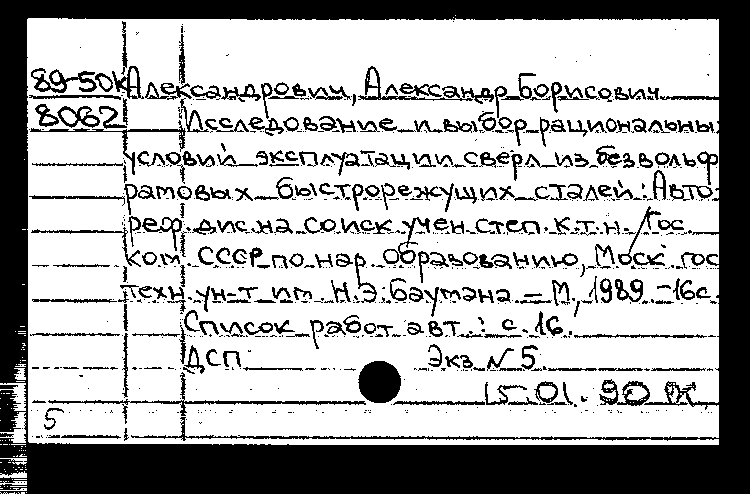 89-50к Александрович, Александр Борисович
8062 Исследование и выбор рациональных
условий эксплуатации сверл из безвольф
рамовых быстрорежущих сталей: Авто-
реф. дис. на соиск. учен. степ. к.т.н. / Гос.
ком. СССР по нар. образованию, Моск. гос.
техн. ун-т им. Н.Э. Баумана – М., 1989. – 16с.
Список работ авт.: с. 16.
ДСП Экз N 5
15.01.90
5